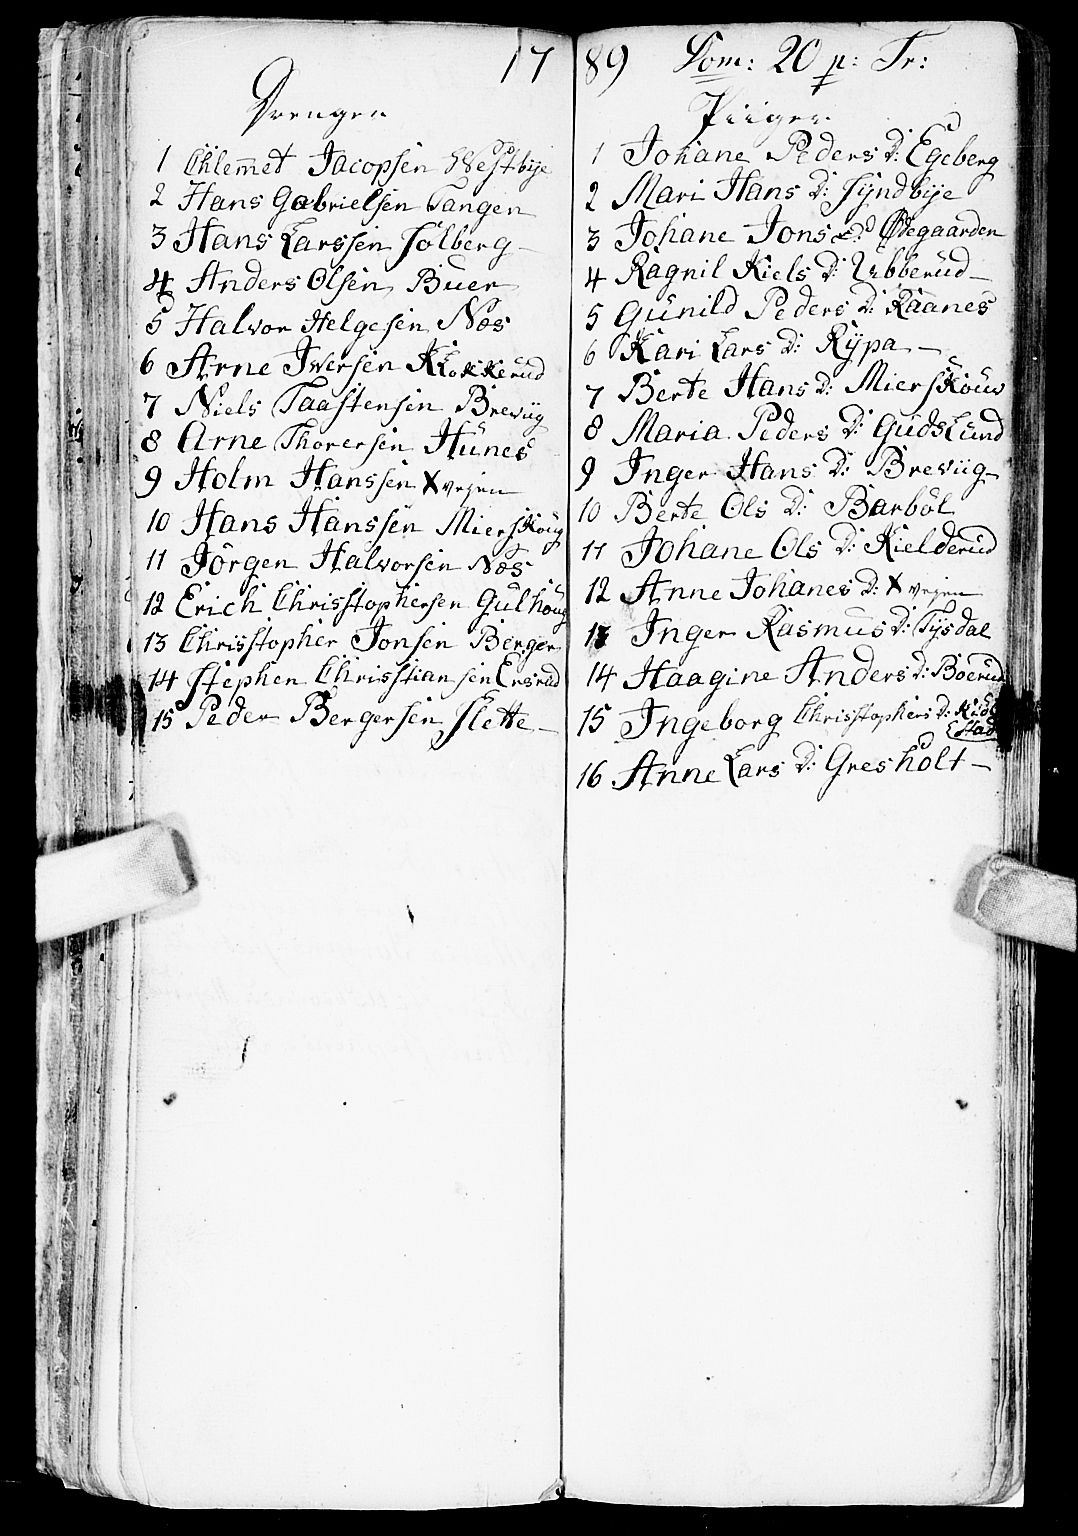 1789 Dom: 20 p: Tr:
Drenger
1 Chlemet Jacopsen Westbije
2 Hans Gabrielsen Tangen
3 Hans Larssen Sölberg
4 Anders Olsen Buer
5 Halvor Helgesen Næs
6 Arne Iversen Klokkerud
7 Niels Taastensen Breviig
8 Arne Thorersen Hunes
9 Holm Hanssen Xvejen
10 Hans Hanssen Mierskoug
11 Jörgen Halvorsen Næs
12 Erich Chrisstophersen Gulhoug
13 Chrisstopher Jonsen Berger
14 Stephen Chrisstiansen Ersrud
15 Peder Bergersen Slette
Piiger
1 Johane Peders D: Egeberg
2 Mari Hans D: Syndbije
3 Johane Jons D: Ødegaarden
4 Ragnil Kiels D: Ubberud
5 Gunild Peders D: Raanes
6 Kari Lars D: Rypa
7 Berte Hans D: Mierskouv
8 Maria Peders D: Gudslund
9 Inger Hans D: Breviig
10 Berte Ols D: Barböl
11 Johane Ols D: Kielderud
12 Anne Johanes D: Xvejen
13 Inger Rasmus D: Tysdal
14 Haagine Anders D: Boerud
15 Ingeborg Chrisstophers D:
16 Anne Lars D: Gresholt